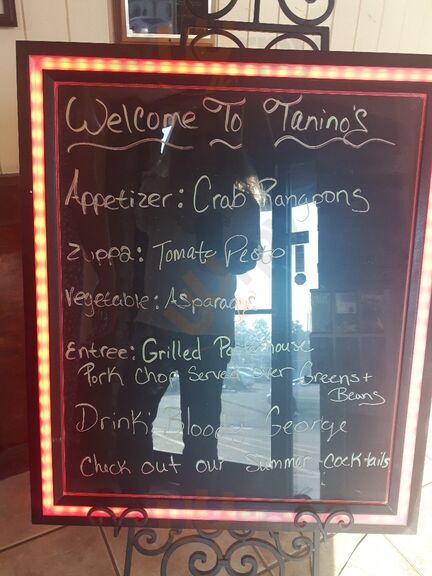 Welcome To Tanino's
Appetizer: Crab Rangoons
Zuppa: Tomato Pesto
Vegetable: Asparagus
Entree: Grilled Porterhouse
Pork Chop Served over Greens +
Beans
Drink: Bloody George
Check out our Summer Cocktails